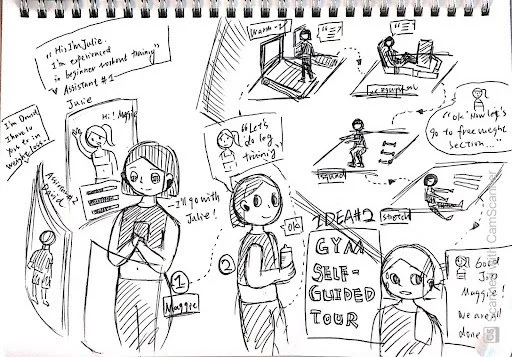 "Hi, I'm Julie.
I'm experienced
in beginner workout training"
Assistant #1
Julie
Hi! Maggie
I'm David
I have to
Assistant 2
David
I'll go with
Julie!
1
Maggie
Let's
do leg
training"
Ok
2
Warm-up
"Ok! Now let's
go to free weight
section...."
squad
stretch
IDEA #2
GYM
SELF-
GUIDED
TOUR
Good
Job
Maggie!
We are all
done
CS Scanned with CamScanner